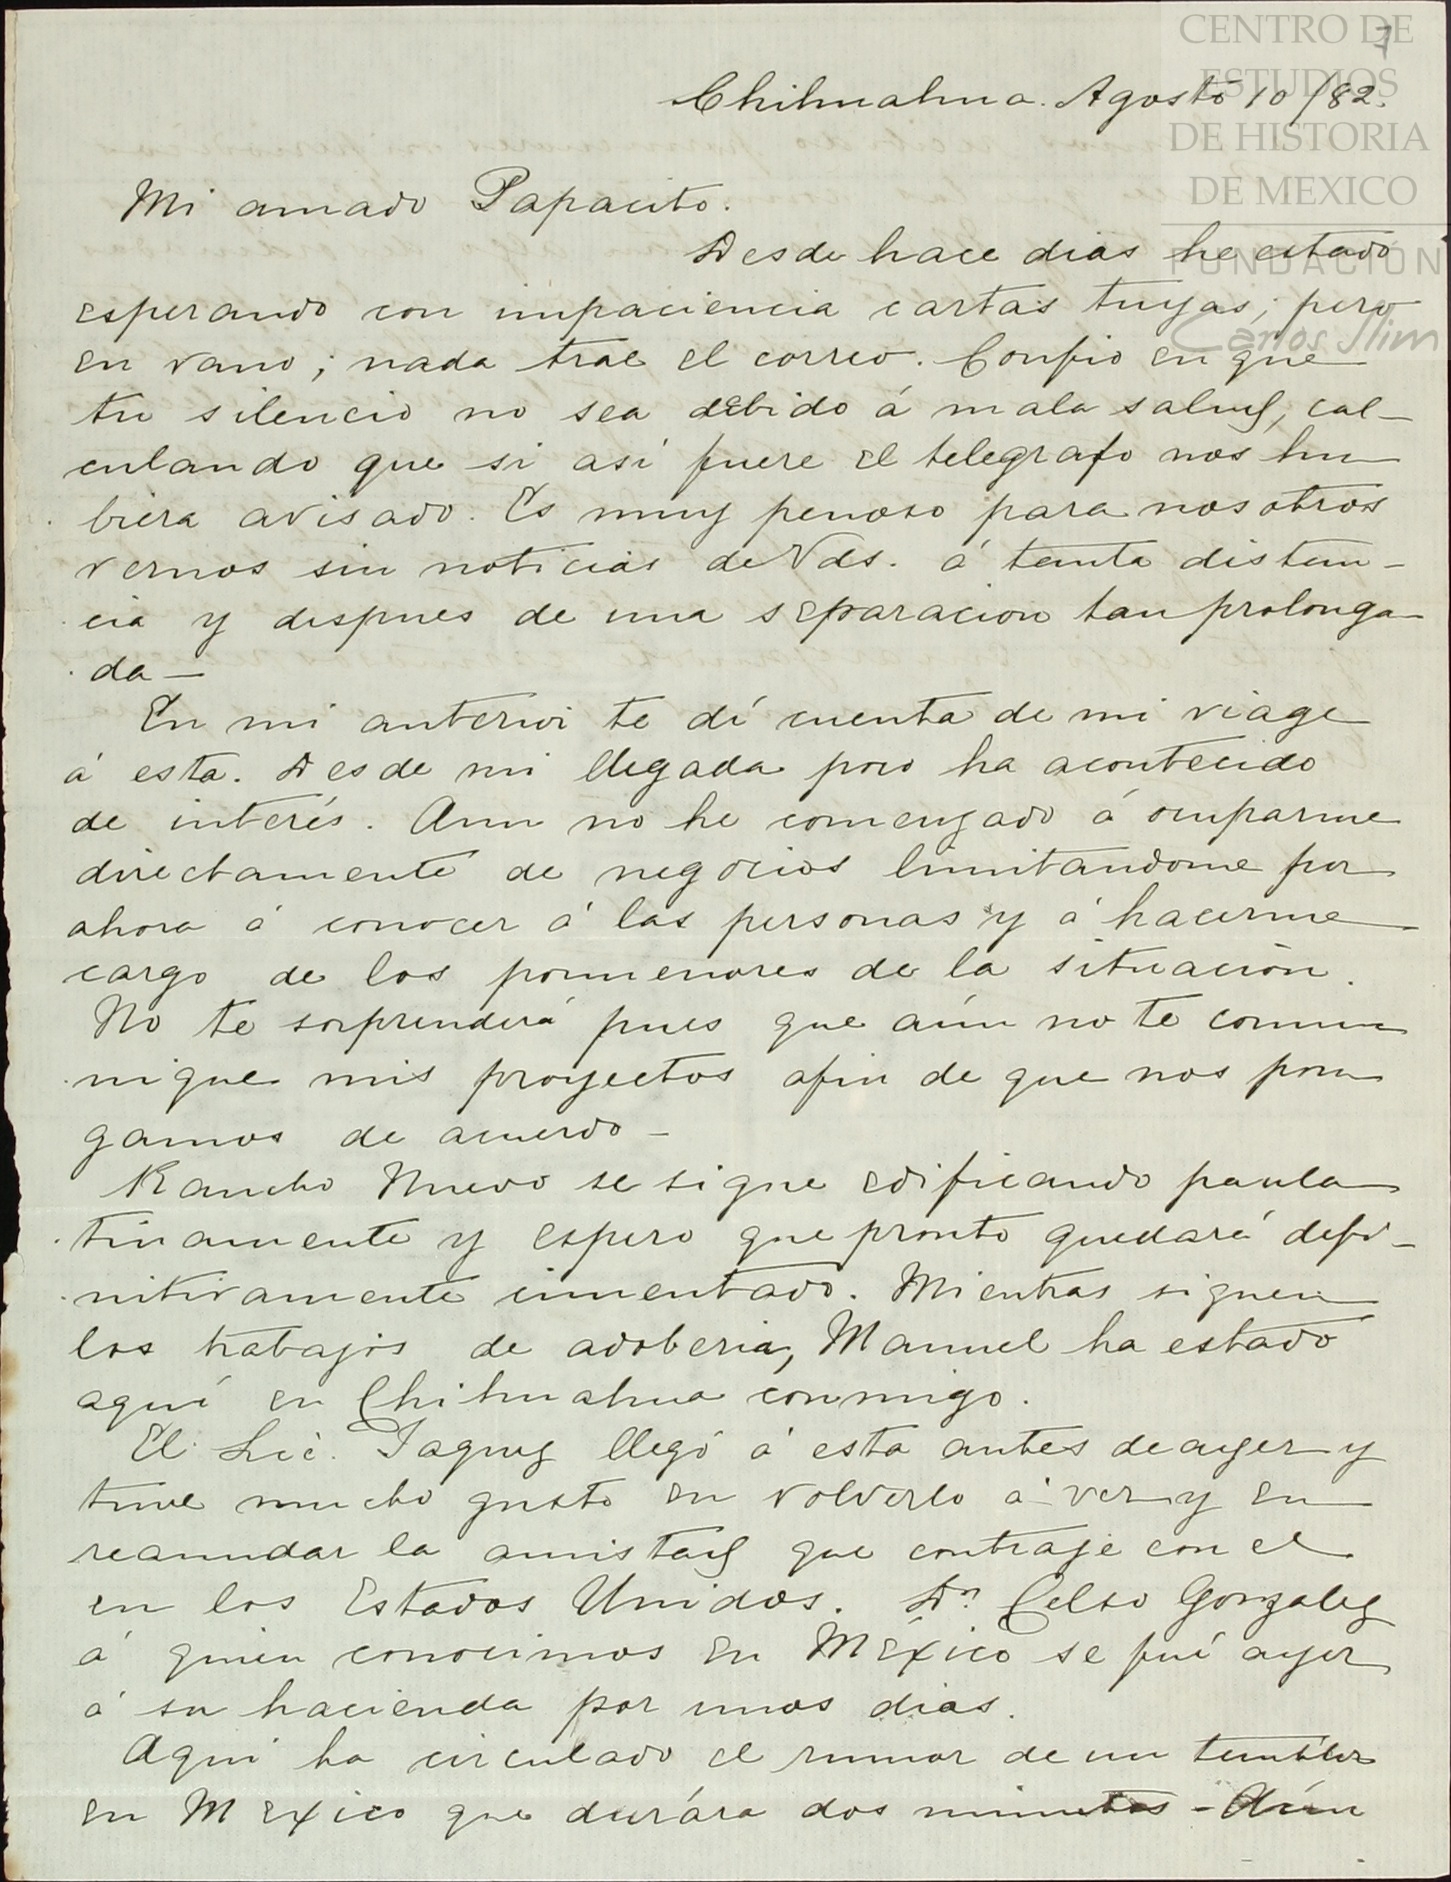 CENTRO DE
ESTUDIOS
DE HISTORIA
DE MEXICO
FUNDACIÓN
Carlos Slim
7
Chihuahua. Agosto 10/82.
Mi amado Papacito.
Desde hace dias he estado
esperando con impaciencia cartas tuyas; pero
en vano; nada trae el correo. Confio en que
tu silencio no sea debido á mala salud, cal-
culando que si asi fuere el telegrafo nos hu
biera avisado. Es muy penoso para nosotros
vernos sin noticias de Vds. á tanta distan-
cia y despues de una separacion tan prolonga
da—
En mi anterior te dí cuenta de mi viage
á esta. Desde mi llegada poco ha acontecido
de interés. Aun no he comenzado á ocuparme
directamente de negocios limitandome por
ahora á conocer á las personas y á hacerme
cargo de los pormenores de la situación.
No te sorprenderá pues que aún no te comu
nique mis proyectos afin de que nos pon
gamos de acuerdo—
Rancho Nuevo se sigue edificando paula
tinamente y espero que pronto quedará defi-
nitivamente cimentado. Mientras siguen
los trabajos de adoberia, Manuel ha estado
aquí en Chihuahua conmigo.
El Lic. Jaquez llegó á esta antes de ayer y
tuve mucho gusto en volverlo á ver y en
reanudar la amistad que contraje con el
en los Estados Unidos. Dn. Celso Gonzalez
á quien conocimos en México se fué ayer
á su hacienda por unos dias.
Aqui ha circulado el rumor de un temblor
en Mexico que durára dos minutos - Aún